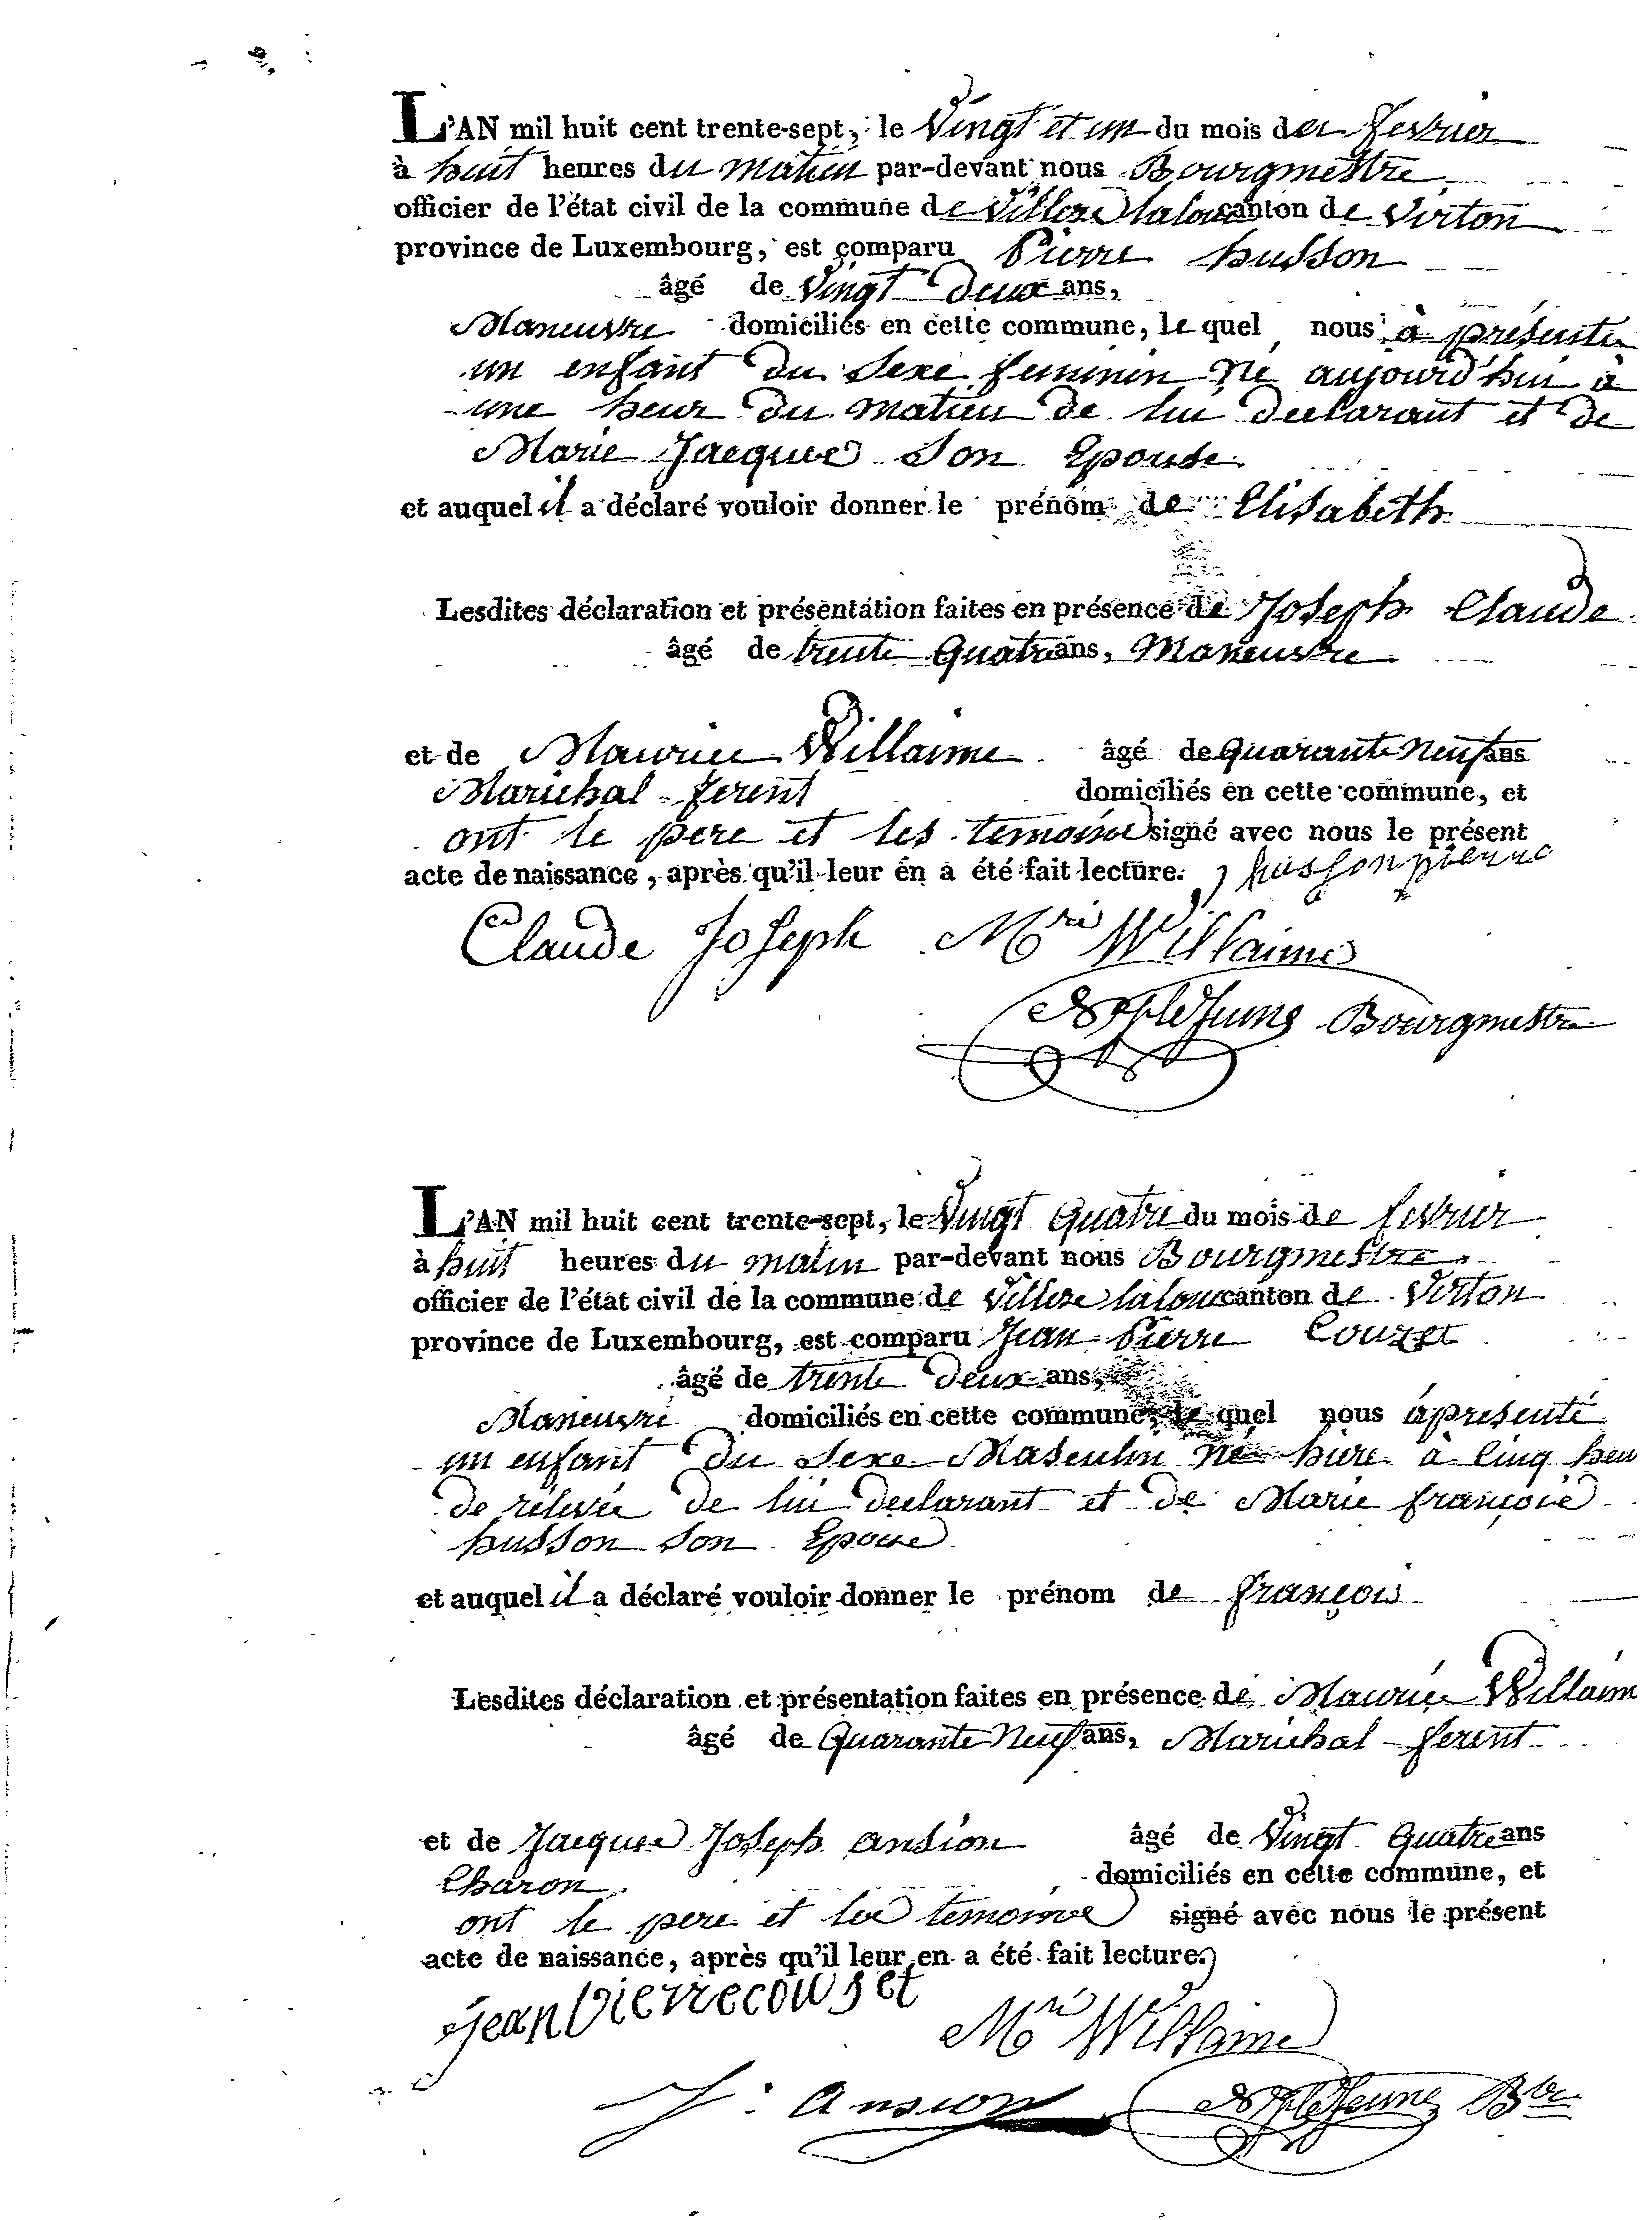 L'AN mil huit cent trente-sept, le Vingt et un du mois de fevrier
à huit heures du matin par-devant nous Bourgmestre,
officier de l'état civil de la commune de Villers la loue canton de Virton
province de Luxembourg, est comparu Pierre husson
âgé de Vingt Deux ans,
Maneuvre domiciliés en cette commune, le quel nous à présenté
un enfant du Sexe feminin né aujourd'hui à
une heur du matin de lui declarant et de
Marie Jacques son Epouse
et auquel il a déclaré vouloir donner le prénom de Elisabeth
Lesdites déclaration et présentation faites en présence de Joseph Claude
âgé de trente Quatre ans, Maneuvre
et de Maurice Willaime âgé de Quarante Neuf ans
Marichal ferent domiciliés en cette commune, et
ont le pere et les temoins signé avec nous le présent
acte de naissance, après qu'il leur en a été fait lecture. husson pierre
Claude Joseph Mri Willaime
Bourgmestre
L'AN mil huit cent trente-sept, le Vingt Quatre du mois de fevrier
à huit heures du matin par-devant nous Bourgmestre,
officier de l'état civil de la commune de Villers la loue canton de Virton
province de Luxembourg, est comparu Jean Pierre Couzet
âgé de trente Deux ans,
Maneuvre domiciliés en cette commune, le quel nous à presenté
un enfant du Sexe Masculin né hiere à Cinq heu
de rélevée de lui declarant et de Marie françoise
husson son Epouse
et auquel il a déclaré vouloir donner le prénom de françois
Lesdites déclaration et présentation faites en présence de Maurice Willaim
âgé de Quarante Neuf ans, Marichal ferent
et de Jacques Joseph ansion âgé de Vingt Quatre ans
Charon domiciliés en cette commune, et
ont le pere et les temoins signé avec nous le présent
acte de naissance, après qu'il leur en a été fait lecture.
jean Pierre couset Mri Willaime
J: ansion Lejeune Bre